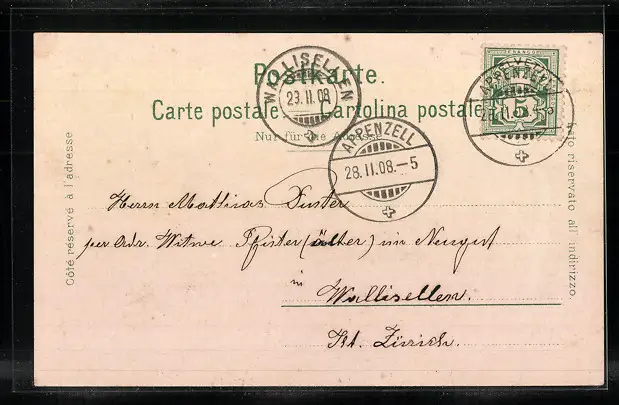 Postkarte.
Carte postale. Cartolina postale
Nur für die Adresse.
Côté réservé à l'adresse
lato riservato all' indirizzo.
WALLISELLEN
23.II.08
APPENZELL
28.II.08.–5
APPENZELL
FRANCO
5
Herrn Mathias Suster
per Adr. Witwe Pfister (älter) im Neugut
in
Wallisellen.
Kt. Zürich.